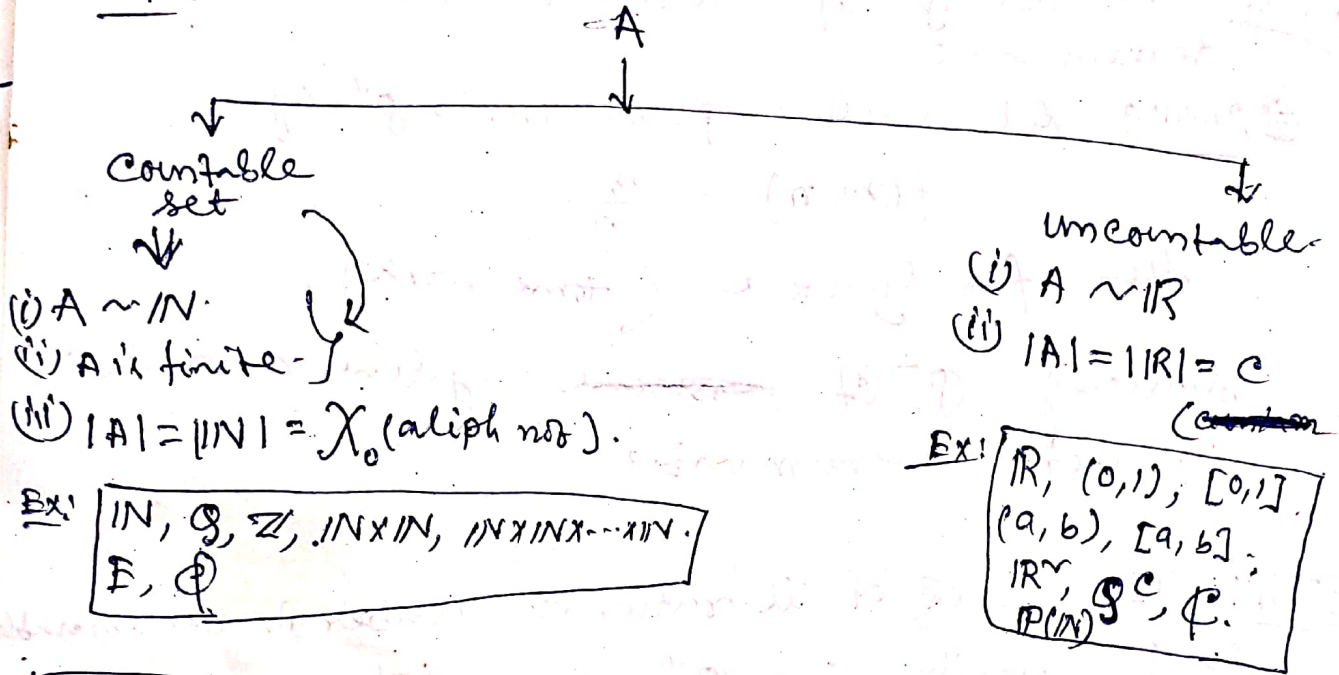 A
Countable
set
(i) A ~ IN.
(ii) A is finite
(iii) |A| = |IN| = X₀ (aliph not).
Ex: IN, Q, Z, IN×IN, IN×IN×---×IN.
E, ϕ
uncountable
(i) A ~ IR
(ii) |A| = |IR| = C
Ex: IR, (0,1), [0,1]
(a, b), [a, b],
IRⁿ, Qᶜ, ₵.
IP(IN)